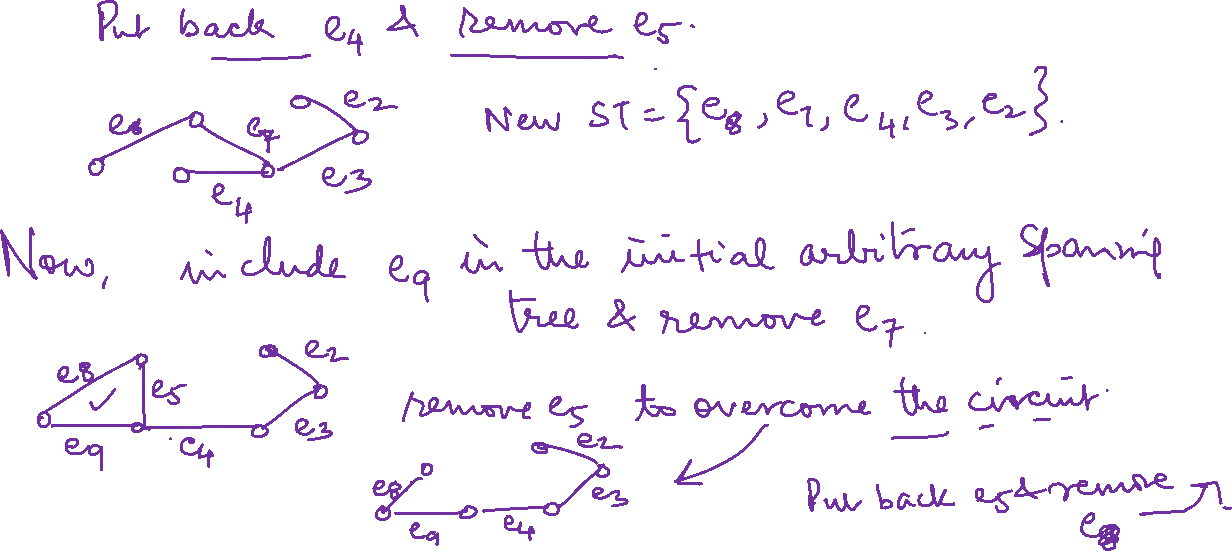 Put back e4 & remove e5.
e8 e7 e2 e3 e4
New ST = {e8, e7, e4, e3, e2}.
Now, include e9 in the initial arbitrary spanning
tree & remove e7.
e8 e5 e2 e3 e9 e4
remove e5 to overcome the circuit.
e8 e9 e4 e3 e2
Put back e5 & remove